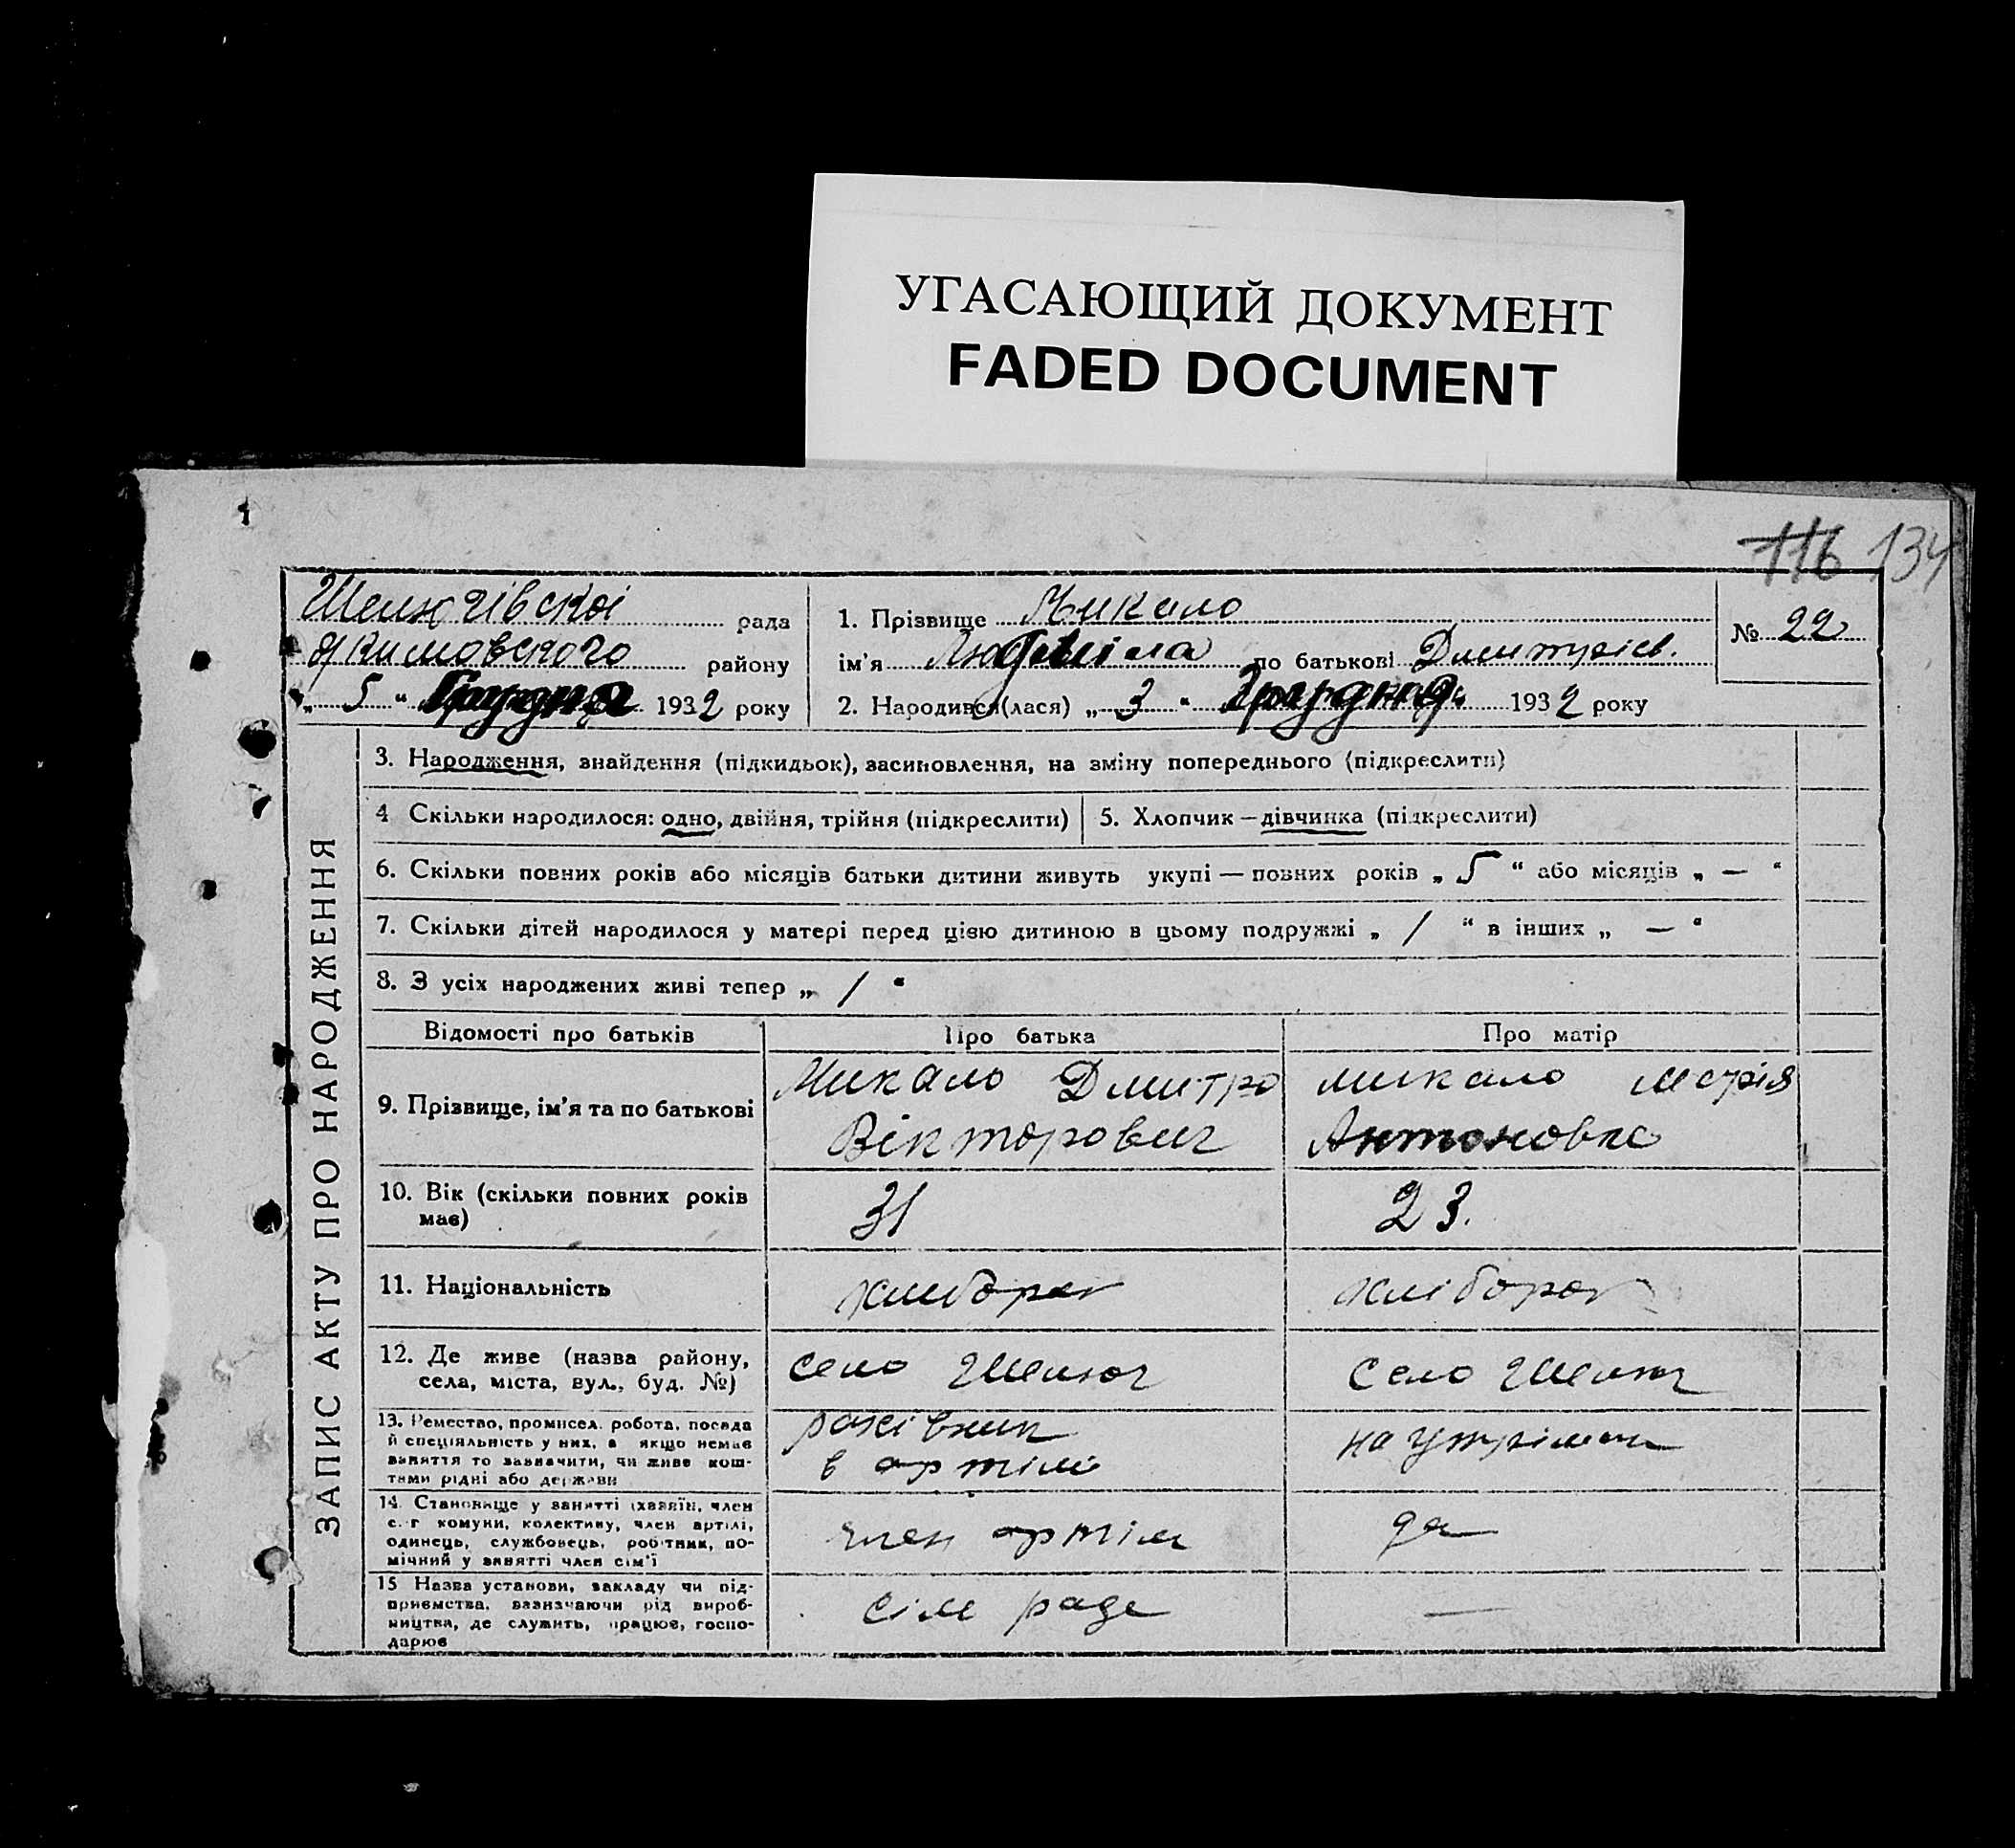 УГАСАЮЩИЙ ДОКУМЕНТ
FADED DOCUMENT
116 134
Шелюгівскої рада
Якимовского району
„ 5 “ Грудня 1932 року
1. Прізвище Микало
ім'я Людміла по батькові Дмитрієв.
2. Народився(лася) „ 3 “ Грудня 1932 року
№ 22
ЗАПИС АКТУ ПРО НАРОДЖЕННЯ
3. Народження, знайдення (підкидьок), засиновлення, на зміну попереднього (підкреслити)
4 Скільки народилося: одно, двійня, трійня (підкреслити)
5. Хлопчик — дівчинка (підкреслити)
6. Скільки повних років або місяців батьки дитини живуть укупі — повних років „ 5 “ або місяців „ — “
7. Скільки дітей народилося у матері перед цією дитиною в цьому подружжі „ / “ в інших „ — “
8. З усіх народжених живі тепер „ / “
Відомості про батьків
Про батька
Про матір
9. Прізвище, ім'я та по батькові
Микало Дмитро
Вікторович
микало марія
Антоновна
10. Вік (скільки повних років
має)
31
23.
11. Національність
хлиборог
хліборог
12. Де живе (назва району,
села, міста, вул., буд. №)
село Шелюг
село Шелюг
13. Ремество, промисел, робота, посада
й спеціяльність у них, а якщо немає
заняття то зазначити, чи живе кош-
тами рідні або держави
рахівник
в артілі
на утріман
14. Становище у занятті (хазяїн, член
с.-г комуни, колективу, член артілі,
одинець, службовець, робітник, по-
мічний у занятті член сім'ї
член артіли
да
15 Назва установи, закладу чи під-
приємства, зазначаючи рід вироб-
ництва, де служить, працює, госпо-
дарює
сіл раде
—